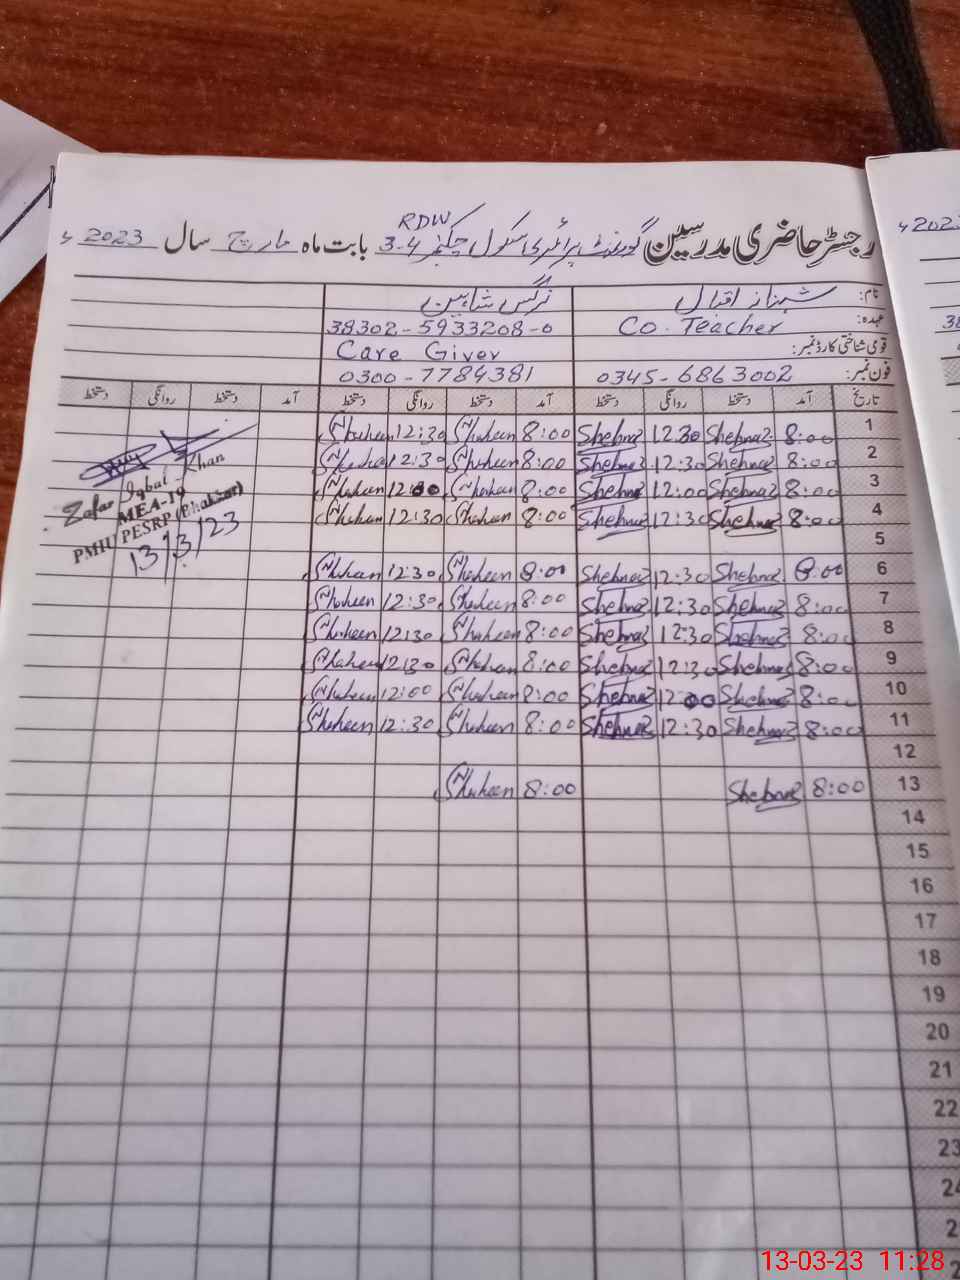 رجسٹر حاضری مدرسین گورنمنٹ پرائمری سکول چکنمبر 3-4 RDW بابت ماہ مارچ سال 2023ء
نام: شہناز اقبال نرگس شاہین
عہدہ: Co. Teacher 38302-5933208-0
قومی شناختی کارڈ نمبر: Care Giver
فون نمبر: 0345-6863002 0300-7784381
تاریخ آمد دستخط روانگی دستخط آمد دستخط روانگی دستخط آمد دستخط روانگی دستخط
1 8:00 Shehnaz 12:30 Shehnaz 8:00 Shaheen 12:30 Shaheen
2 8:00 Shehnaz 12:30 Shehnaz 8:00 Shaheen 12:30 Shaheen
3 8:00 Shehnaz 12:00 Shehnaz 8:00 Shaheen 12:00 Shaheen
4 8:00 Shehnaz 12:30 Shehnaz 8:00 Shaheen 12:30 Shaheen
5
6 8:00 Shehnaz 12:30 Shehnaz 8:00 Shaheen 12:30 Shaheen
7 8:00 Shehnaz 12:30 Shehnaz 8:00 Shaheen 12:30 Shaheen
8 8:00 Shehnaz 12:30 Shehnaz 8:00 Shaheen 12:30 Shaheen
9 8:00 Shehnaz 12:30 Shehnaz 8:00 Shaheen 12:30 Shaheen
10 8:00 Shehnaz 12:00 Shehnaz 8:00 Shaheen 12:00 Shaheen
11 8:00 Shehnaz 12:30 Shehnaz 8:00 Shaheen 12:30 Shaheen
12
13 8:00 Shehnaz 8:00 Shaheen
14
15
16
17
18
19
20
21
22
23
24
Zafar Iqbal Khan
MEA-19
PMIU PESRP (Bhakkar)
13/3/23
2023ء
13-03-23 11:28